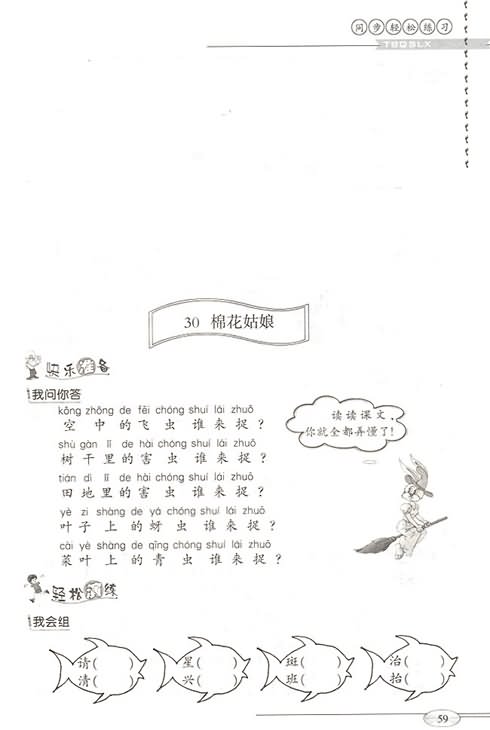 同步轻松练习
TBQSLX
30 棉花姑娘
快乐准备
我问你答
kōng zhōng de fēi chóng shuí lái zhuō
空中的飞虫谁来捉？
shù gàn lǐ de hài chóng shuí lái zhuō
树干里的害虫谁来捉？
tián dì lǐ de hài chóng shuí lái zhuō
田地里的害虫谁来捉？
yè zi shàng de yá chóng shuí lái zhuō
叶子上的蚜虫谁来捉？
cài yè shàng de qīng chóng shuí lái zhuō
菜叶上的青虫谁来捉？
读读课文，
你就全都弄懂了！
轻松训练
我会组
请( ) 星( ) 斑( ) 治( )
清( ) 兴( ) 班( ) 抬( )
59